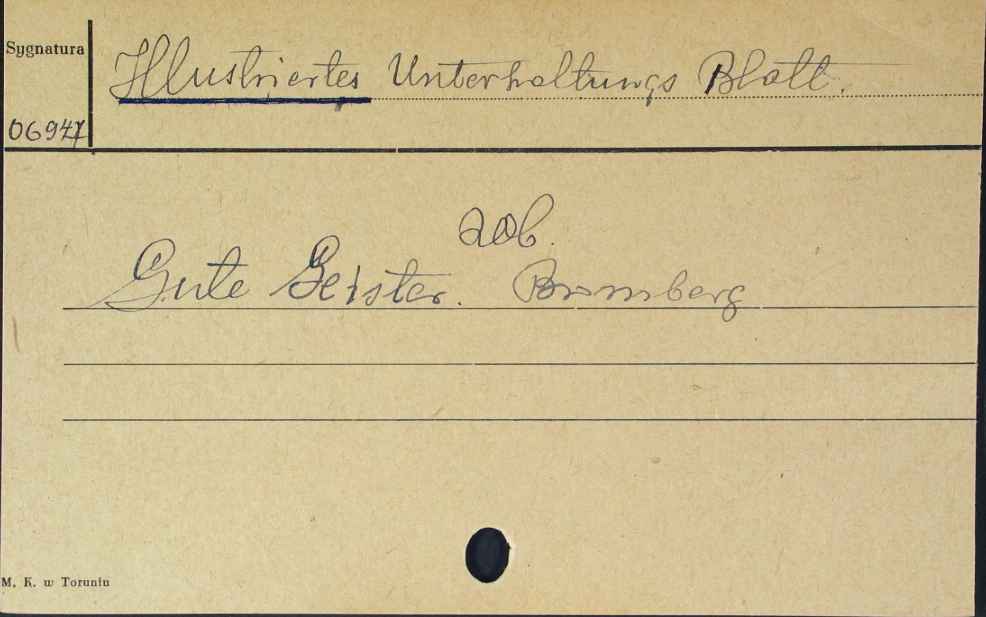 Sygnatura
Illustriertes Unterhaltungs Blatt.
06947
zob.
Gute Geister. Bromberg
M. K. w Toruniu